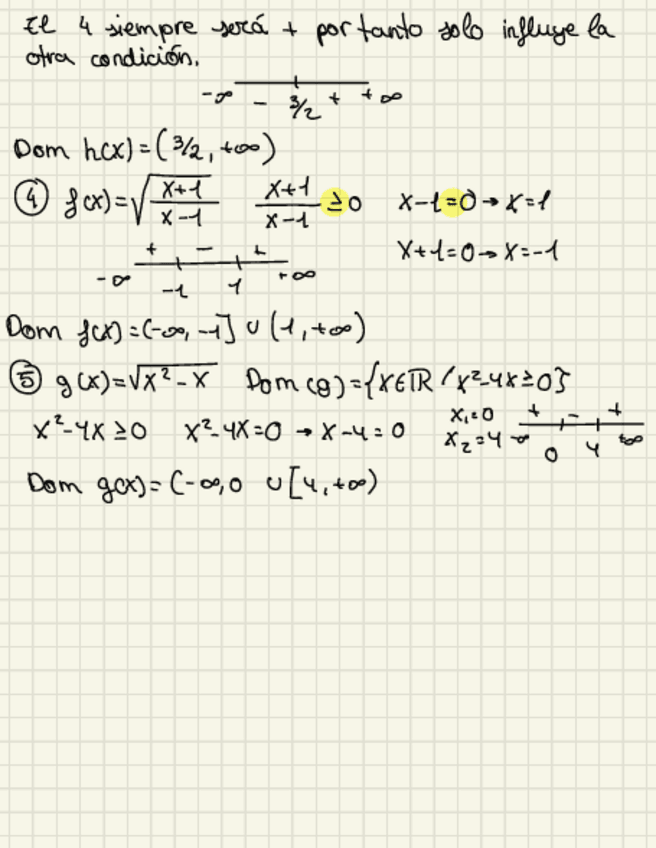 El 4 siempre será + por tanto solo influye la
otra condición.
-∞ - 3/2 + +∞
Dom h(x)=(3/2, +∞)
④ f(x)=√((x+1)/(x-1)) (x+1)/(x-1) ≥0 x-1=0→x=1
x+1=0→x=-1
+ - +
-∞ -1 1 +∞
Dom f(x)=(-∞, -1] ∪ (1, +∞)
⑤ g(x)=√(x²-x) Dom(g)={x∈ℝ / x²-4x≥0}
x²-4x≥0 x²-4x=0 → x-4=0 x₁=0 x₂=4 + - +
-∞ 0 4 +∞
Dom g(x)=(-∞,0 ∪ [4,+∞)